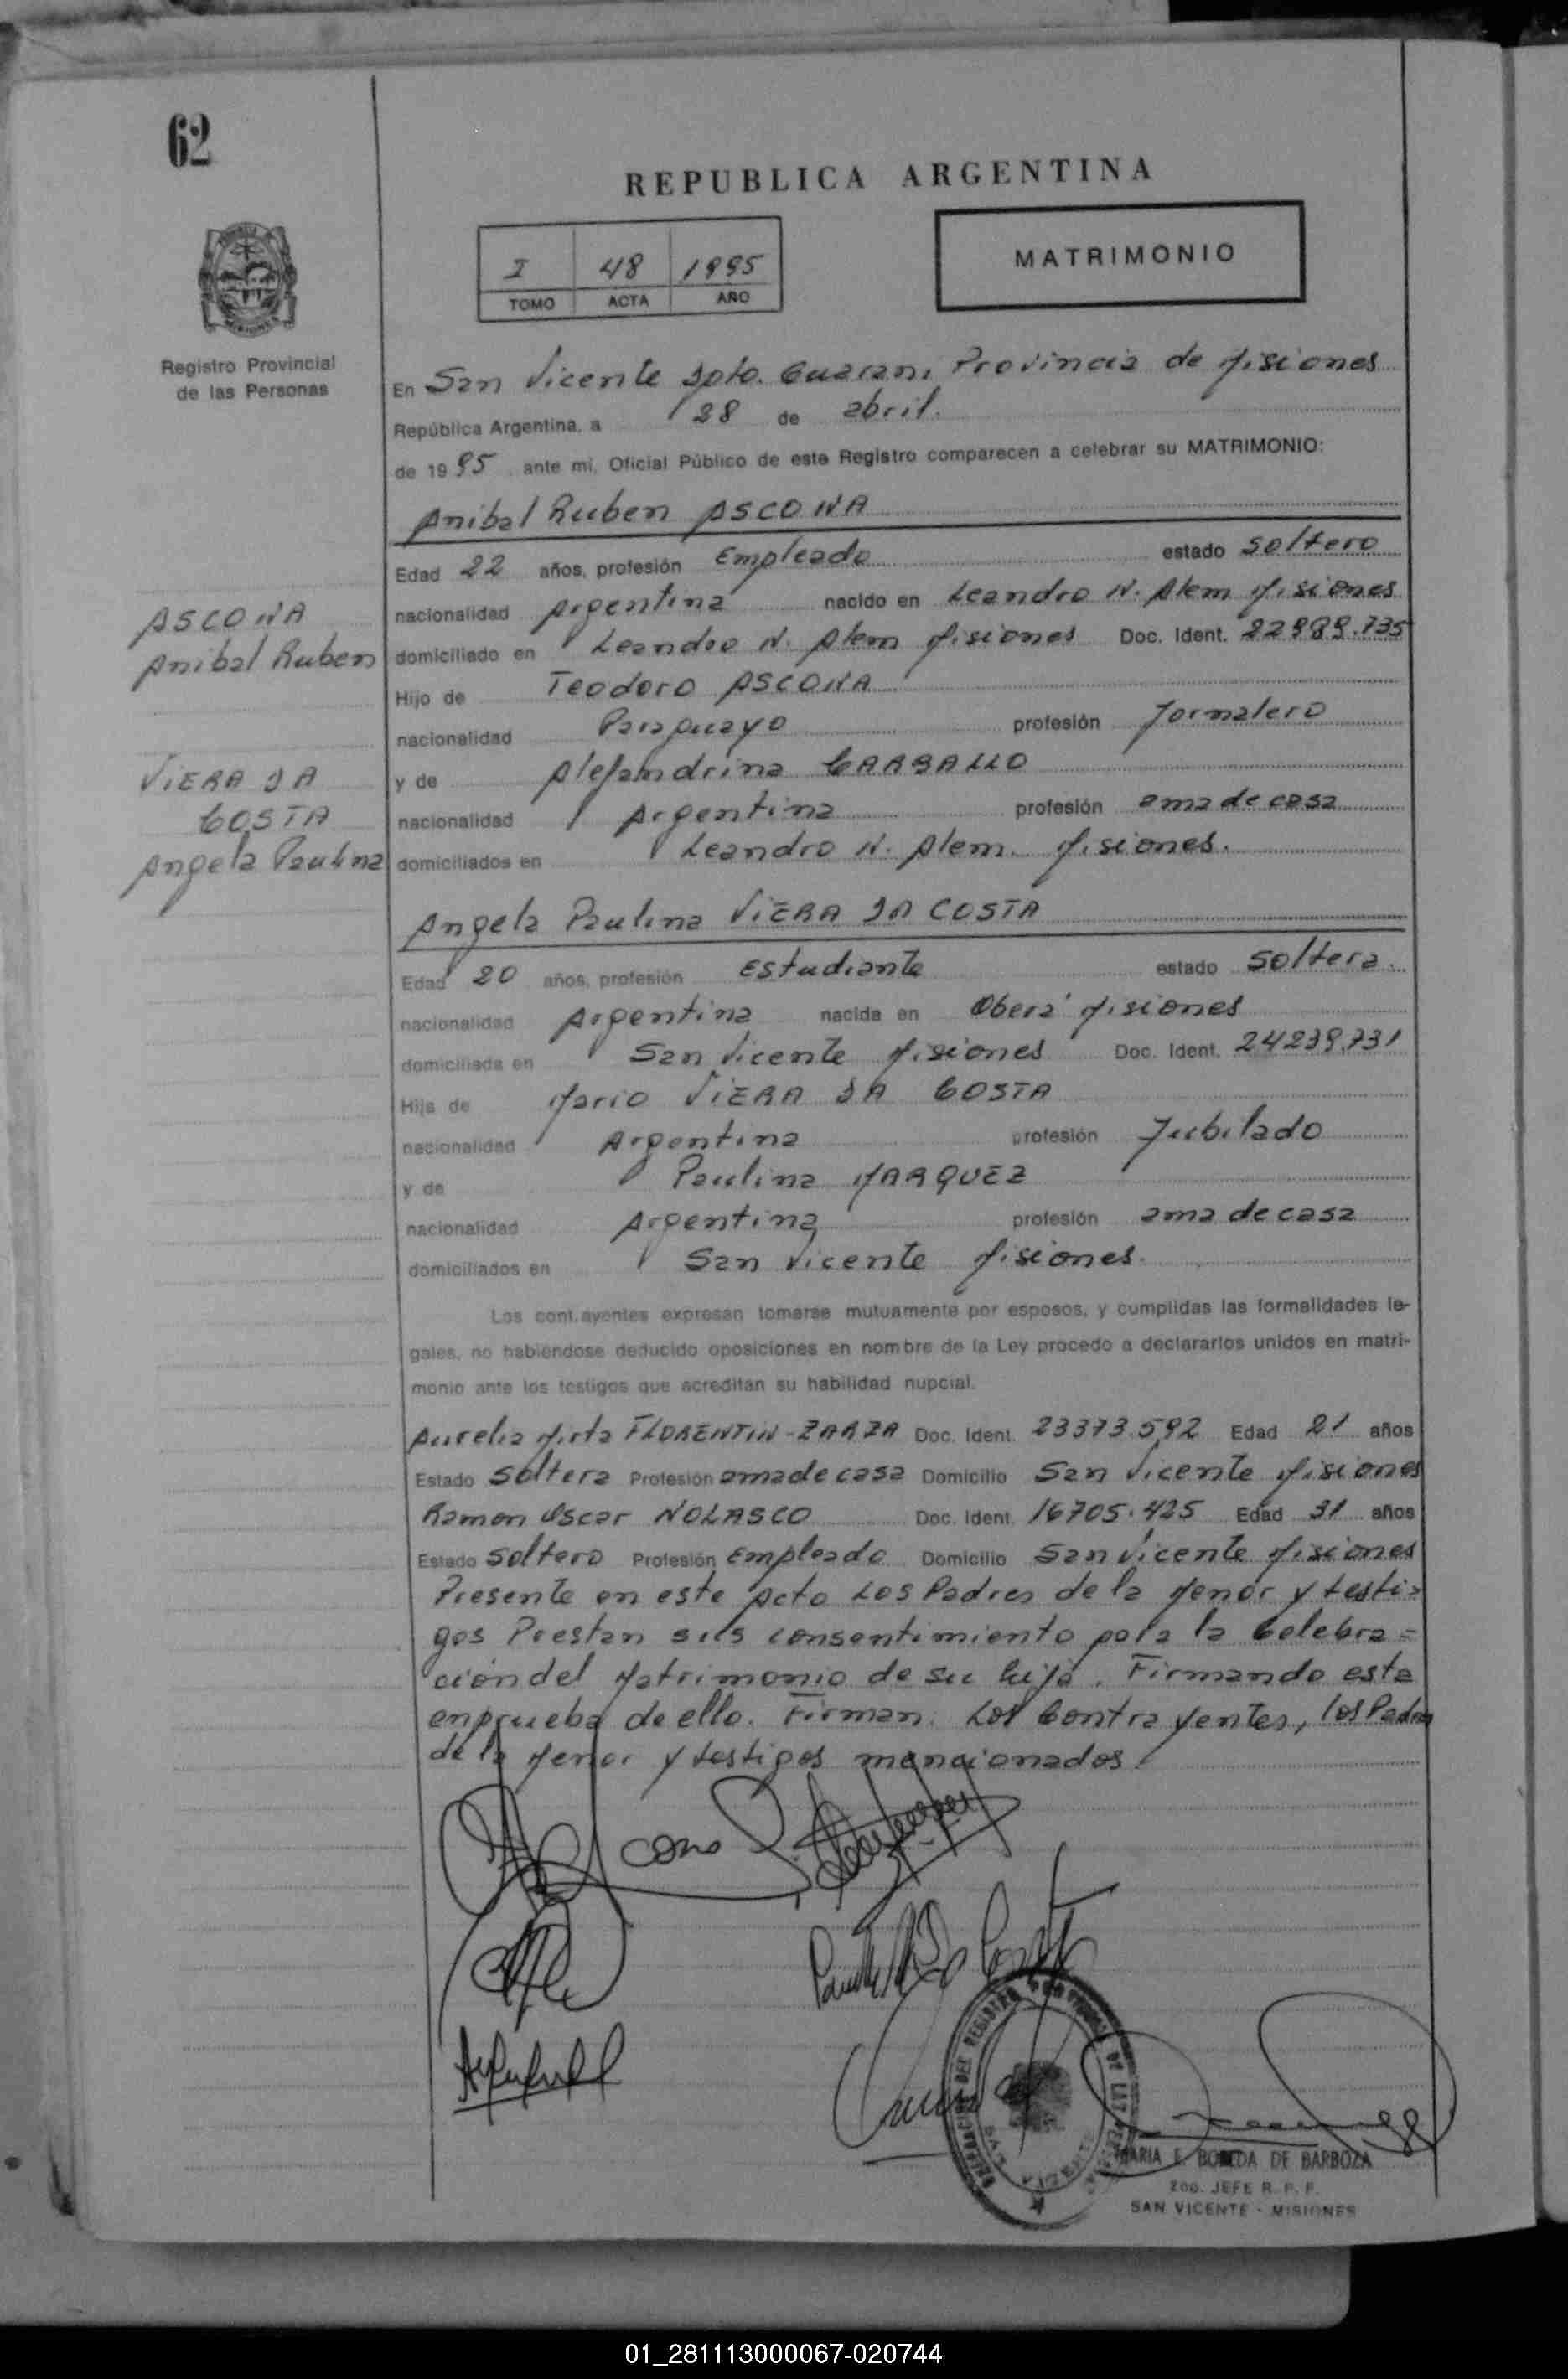 62
REPUBLICA ARGENTINA
I 48 1995
TOMO ACTA AÑO
MATRIMONIO
Registro Provincial
de las Personas
En San Vicente Dpto. Guarani Provincia de Misiones
República Argentina, a 28 de abril.
de 1995 ante mi, Oficial Público de este Registro comparecen a celebrar su MATRIMONIO:
Anibal Ruben ASCONA
Edad 22 años, profesión Empleado estado Soltero
nacionalidad Argentina nacido en Leandro N. Alem Misiones
domiciliado en Leandro N. Alem Misiones Doc. Ident. 22989.735
Hijo de Teodoro ASCONA
nacionalidad Paraguayo profesión Jornalero
y de Alejandrina CARBALLO
nacionalidad Argentina profesión ama de casa
domiciliados en Leandro N. Alem. Misiones.
ASCONA
Anibal Ruben
VIERA DA
COSTA
Angela Paulina
Angela Paulina VIERA DA COSTA
Edad 20 años, profesión Estudiante estado Soltera.
nacionalidad Argentina nacida en Oberá Misiones
domiciliada en San Vicente Misiones Doc. Ident. 24239.731
Hija de Mario VIERA DA COSTA
nacionalidad Argentina profesión Jubilado
y de Paulina MARQUEZ
nacionalidad Argentina profesión ama de casa
domiciliados en San Vicente Misiones.
Los contrayentes expresan tomarse mutuamente por esposos, y cumplidas las formalidades le-
gales, no habiéndose deducido oposiciones en nombre de la Ley procedo a declararlos unidos en matri-
monio ante los testigos que acreditan su habilidad nupcial.
Aurelia Mirta FLORENTIN-ZARZA Doc. Ident. 23373.592 Edad 21 años
Estado Soltera Profesión ama de casa Domicilio San Vicente Misiones
Ramon Oscar NOLASCO Doc. Ident. 16705.425 Edad 31 años
Estado Soltero Profesión Empleado Domicilio San Vicente Misiones
Presente en este Acto Los Padres de la Menor y testi=
gos Prestan sus consentimiento para la Celebra=
ción del Matrimonio de su hija. Firmando esta
en prueba de ello. Firman. Los Contrayentes, los Padres
de la Menor y testigos mencionados.
MARIA E. BOBEDA DE BARBOZA
2do. JEFE R. P. P.
SAN VICENTE - MISIONES
01_281113000067-020744